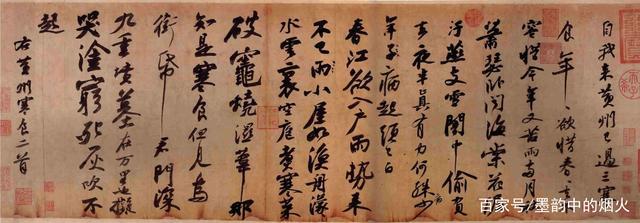 自我來黃州已過三寒
食年〻欲惜春〻去不
容惜今年又苦雨兩月秋
蕭瑟卧聞海棠花泥
汙燕支雪闇中偷負
去夜半真有力何殊少
年子病起頭已白
春江欲入戶雨勢來
不已雨小屋如漁舟濛〻
水雲裏空庖煮寒菜
破竈燒濕葦那
知是寒食但見烏
銜帋君門深
九重墳墓在万里也擬
哭塗窮死灰吹不
起
右黃州寒食二首
百家号/墨韵中的烟火